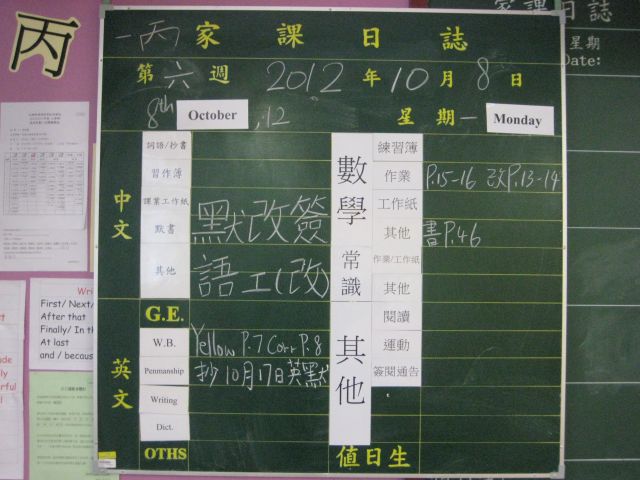 丙
一丙 家課日誌
第六週 2012年10月8日
8th October ,12 星期一 Monday
中文
詞語/抄書
習作簿
課業工作紙
默書 默改簽
其他 語工(改)
英文
G.E.
W.B. Yellow P.7 Corr P.8
Penmanship 抄10月17日英默
Writing
Dict.
OTHS
數學
練習簿
作業 P.15-16 改P.13-14
工作紙
其他 書P.46
常識
作業/工作紙
其他
其他
閱讀
運動
簽閱通告
值日生
家課日誌
星期
Date:
First/ Next/
After that
Finally/ In th
At last
and / because